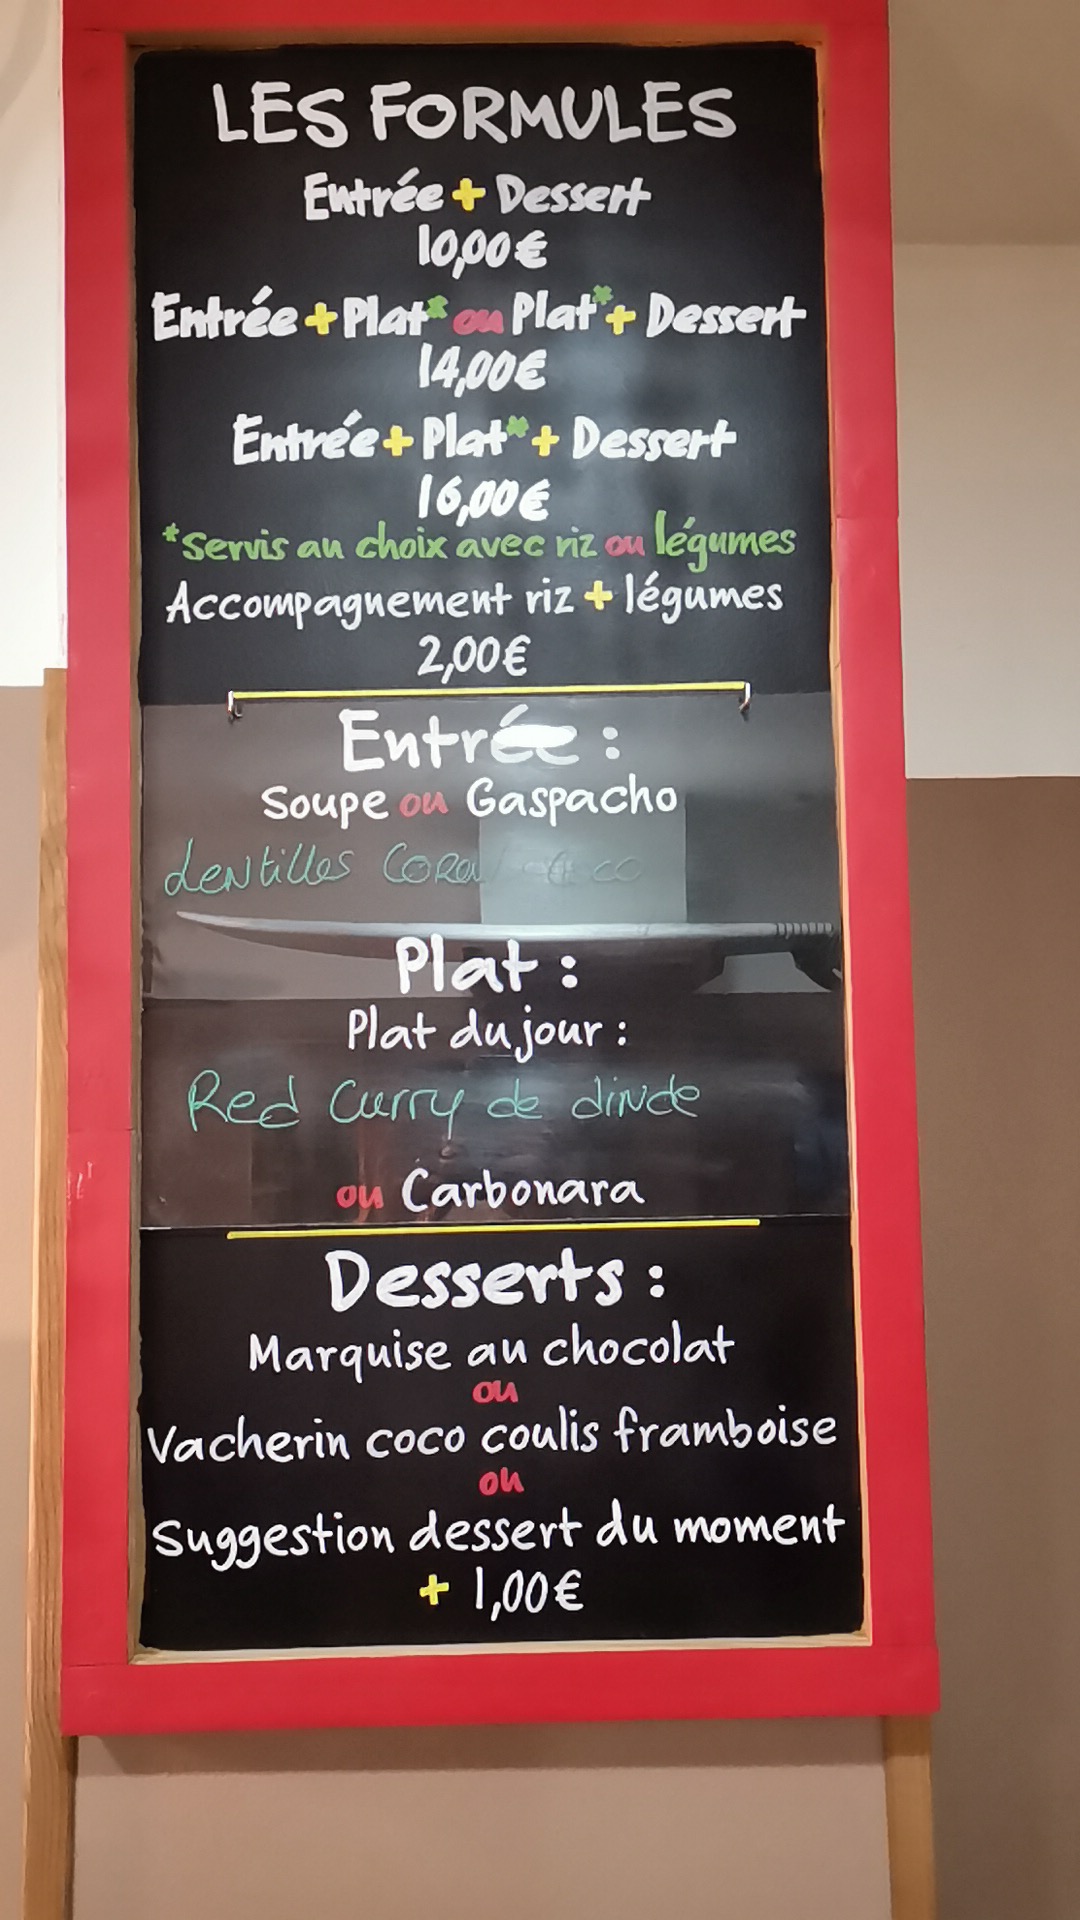 LES FORMULES
Entrée + Dessert
10,00€
Entrée + Plat* ou Plat* + Dessert
14,00€
Entrée + Plat* + Dessert
16,00€
*Servis au choix avec riz ou légumes
Accompagnement riz + légumes
2,00€
Entrée :
Soupe ou Gaspacho
Lentilles Corail coco
Plat :
Plat du jour :
Red Curry de dinde
ou Carbonara
Desserts :
Marquise au chocolat
ou
Vacherin coco coulis framboise
ou
Suggestion dessert du moment
+ 1,00€